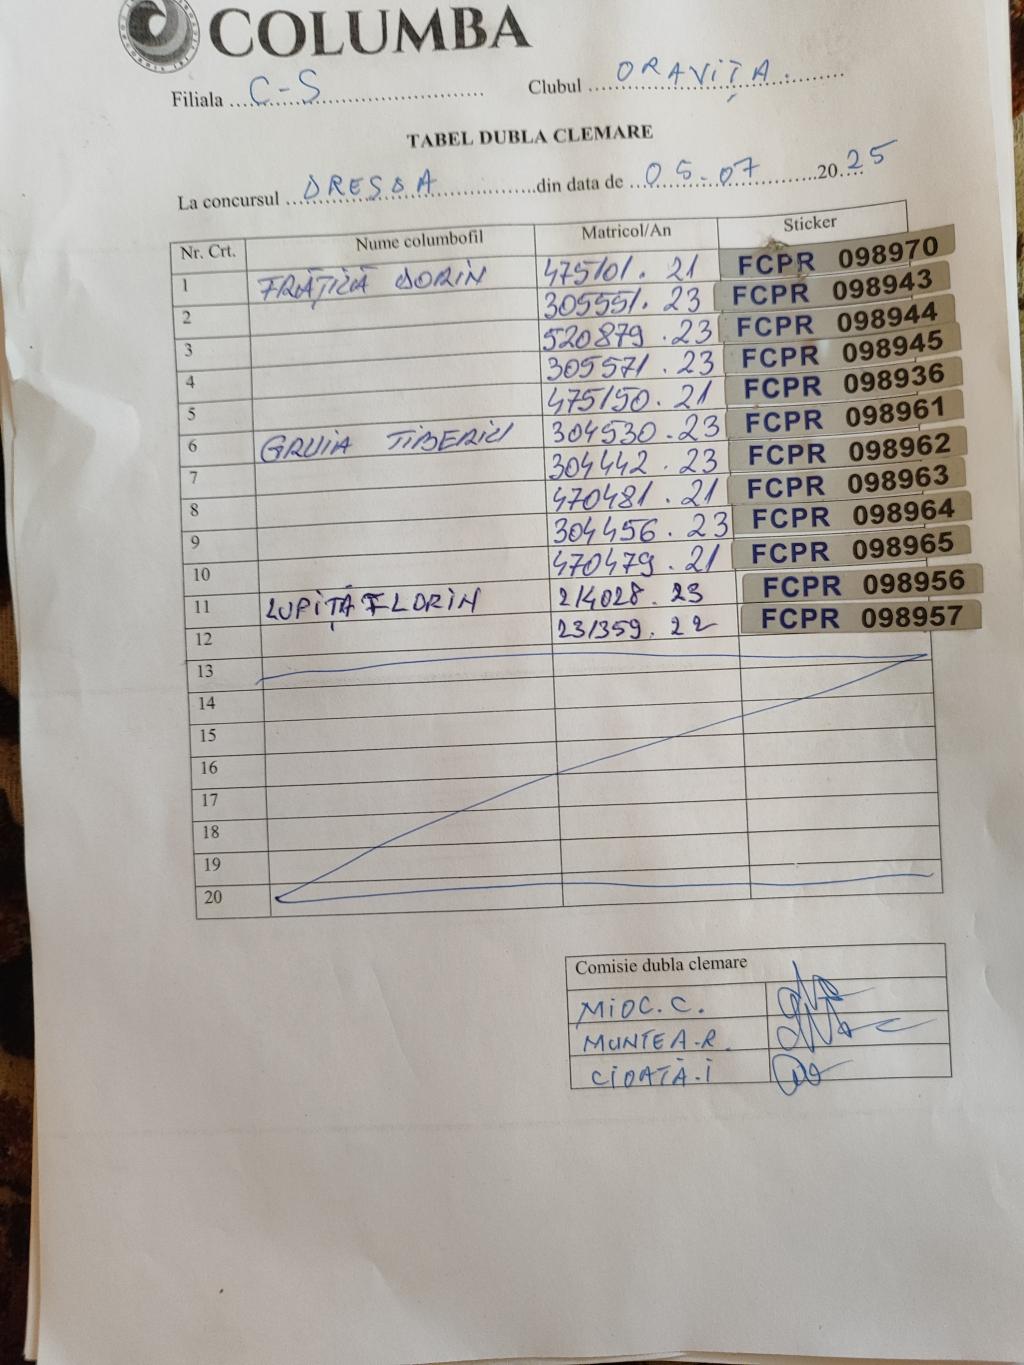 COLUMBA
Filiala C-S Clubul ORAVIȚA.
TABEL DUBLA CLEMARE
La concursul DRESDA din data de 05.07 2025
Nr. Crt. Nume columbofil Matricol/An Sticker
1 FRĂȚILĂ DORIN 475101.21 FCPR 098970
2 305551.23 FCPR 098943
3 520879.23 FCPR 098944
4 305571.23 FCPR 098945
5 475150.21 FCPR 098936
6 GRUIA TIBERIU 304530.23 FCPR 098961
7 304442.23 FCPR 098962
8 470481.21 FCPR 098963
9 304456.23 FCPR 098964
10 470479.21 FCPR 098965
11 LUPIȚĂ FLORIN 214028.23 FCPR 098956
12 231359.22 FCPR 098957
13
14
15
16
17
18
19
20
Comisie dubla clemare
MIOC.C.
MUNTEA.R.
CIOATĂ.I